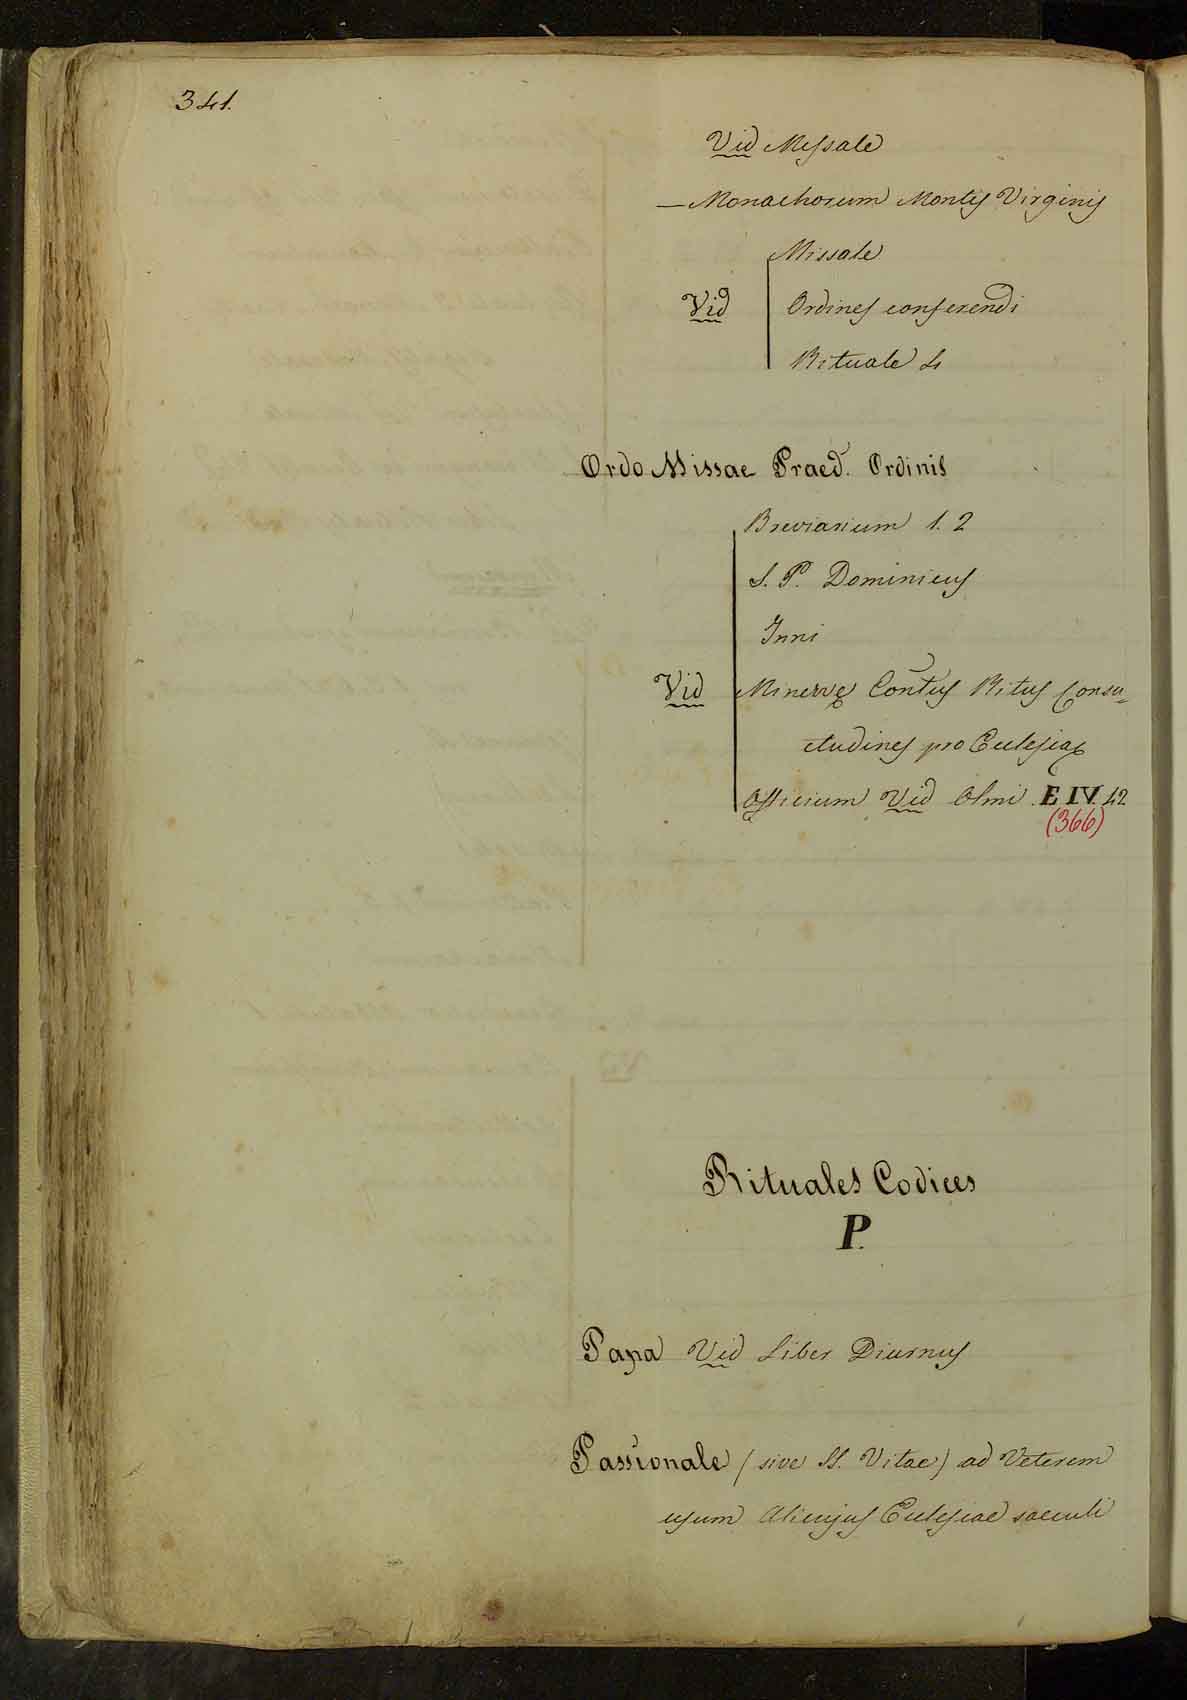 341.
Vid Messale
— Monachorum Montis Virginis
Missale
Vid Ordines conferendi
Rituale 4
Ordo Missae Praed. Ordinis
Breviarium 1. 2
S. P. Dominicus
Inni
Vid Minervę Contus Ritus Consu=
etudines pro Eclesia
Officium Vid Olmi E IV. 42
(366)
Rituales Codices
P.
Papa Vid Liber Diurnus
Passionale (sive SS. Vitae) ad Veterem
usum alicujus Eclesiae saeculi